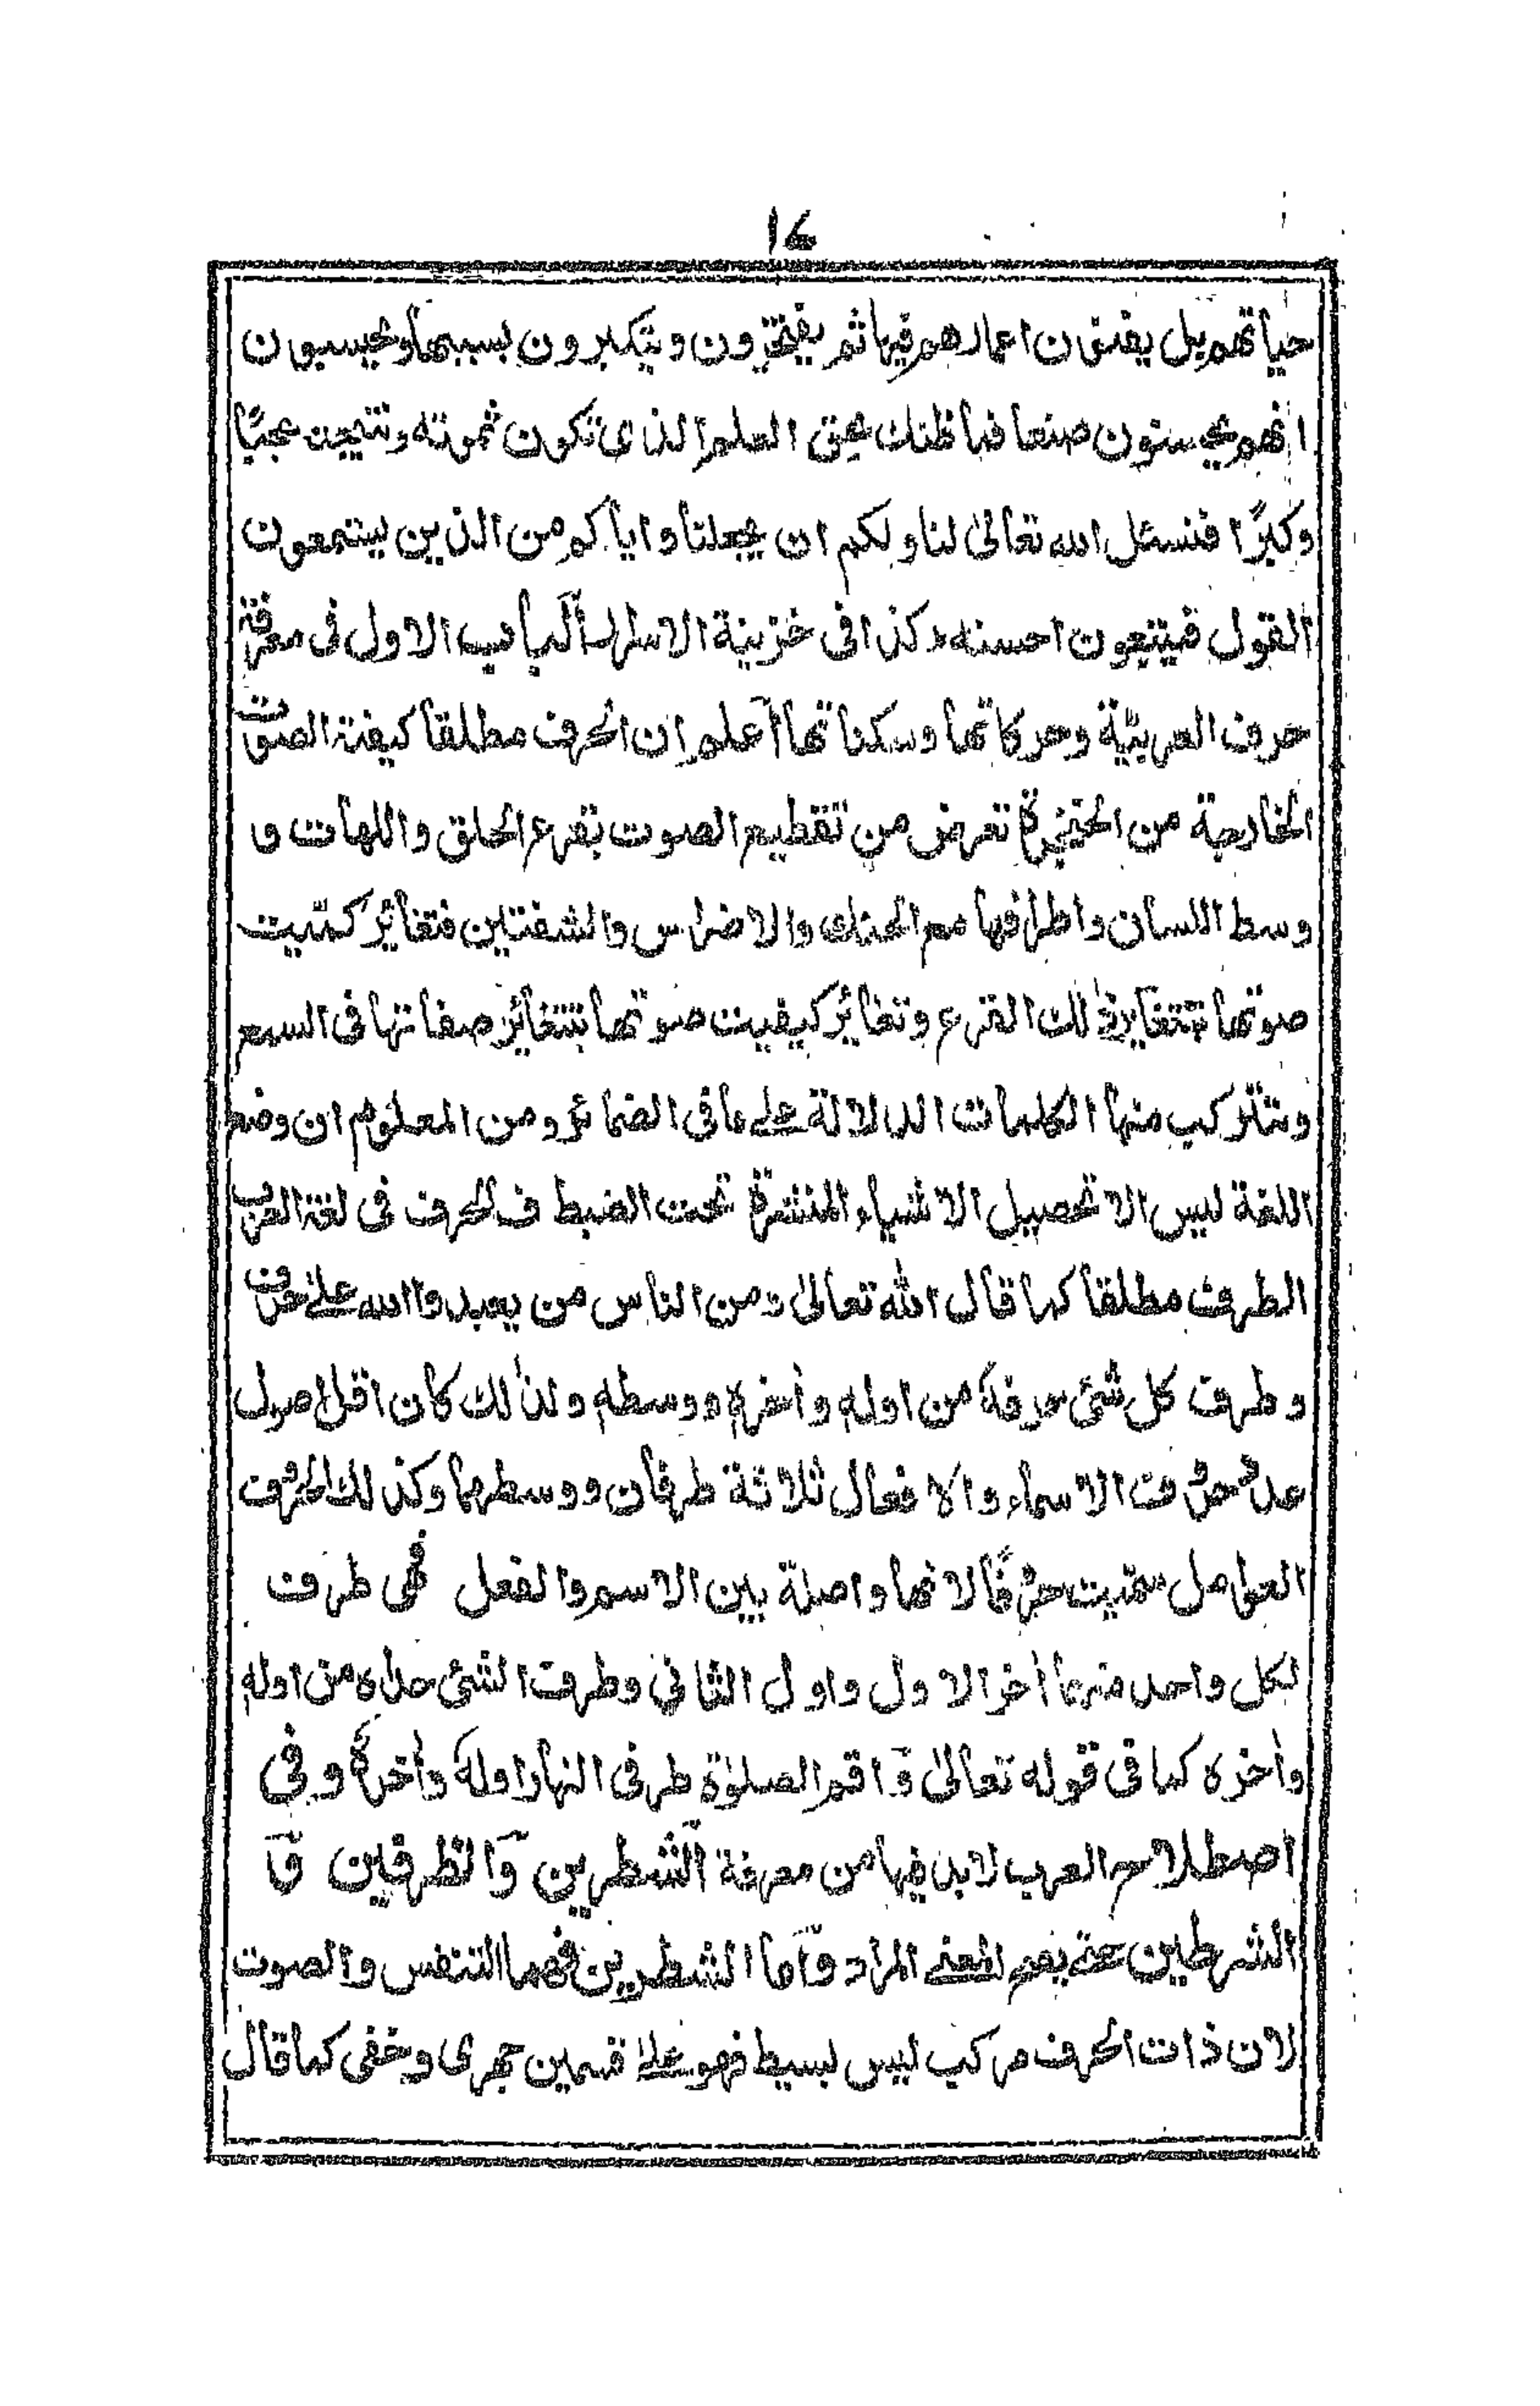 ١٤
حياتهم بل يفنون اعمارهم فيها ثم يفتخرون ويتكبرون بسببها ويحسبون
انهم يحسنون صنعا فما ظنك بحق العلم الذى تكون ثمرته ونتيجته عجبًا
وكبرًا فنسئل الله تعالىٰ لنا ولكم ان يجعلنا واياكم من الذين يستمعون
القول فيتبعون احسنه كذا فى خزينة الاسرار الباب الاول فى معرفة
حروف العربيّة وحركاتها وسكناتها اعلم ان الحرف مطلقا كيفية الصوت
الخارجة من الحنجرة تعرض من تقطيع الصوت بقرع الحلق واللهات و
وسط اللسان واطرافها مع الحنك والاضراس والشفتين فتغائر كيفيت
صوتها بتغاير ذٰلك القرع وتغائر كيفيت صوتها بتغائر صفاتها فى السمع
وتتركب منها الكلمات الدلالة علے ما فى الضمائر ومن المعلوم ان وضع
اللغة ليس الا تحصيل الاشياء المنتشرة تحت الضبط فالحرف فى لغة العرب
الطرف مطلقا كما قال الله تعالىٰ ومن الناس من يعبدوا الله علے حرف
وطرف كل شئ حرفه من اوله واٰخره ووسطه ولذٰلك كان اقل اصول
عدد حروف الاسماء والافعال ثلاثة طرفان ووسطهما وكذلك الحروف
العوامل سميت حروفًا لانها واصلة بين الاسم والفعل فهى طرف
لكل واحد منهما اٰخر الاول واول الثانى وطرف الشئ حداه من اوله
واٰخره كما فى قوله تعالىٰ وَاقم الصلوٰة طرفى النهار اوله واٰخره وفى
اصطلاح العرب لابد فيها من معرفة الشطرين والطرفين و
الشرطين حتے يعم المعنے المراد واما الشطرين فهما التنفس والصوت
لان ذات الحرف مركب ليس بسيط فهو علےٰ قسمين جهرى وخفى كما قال